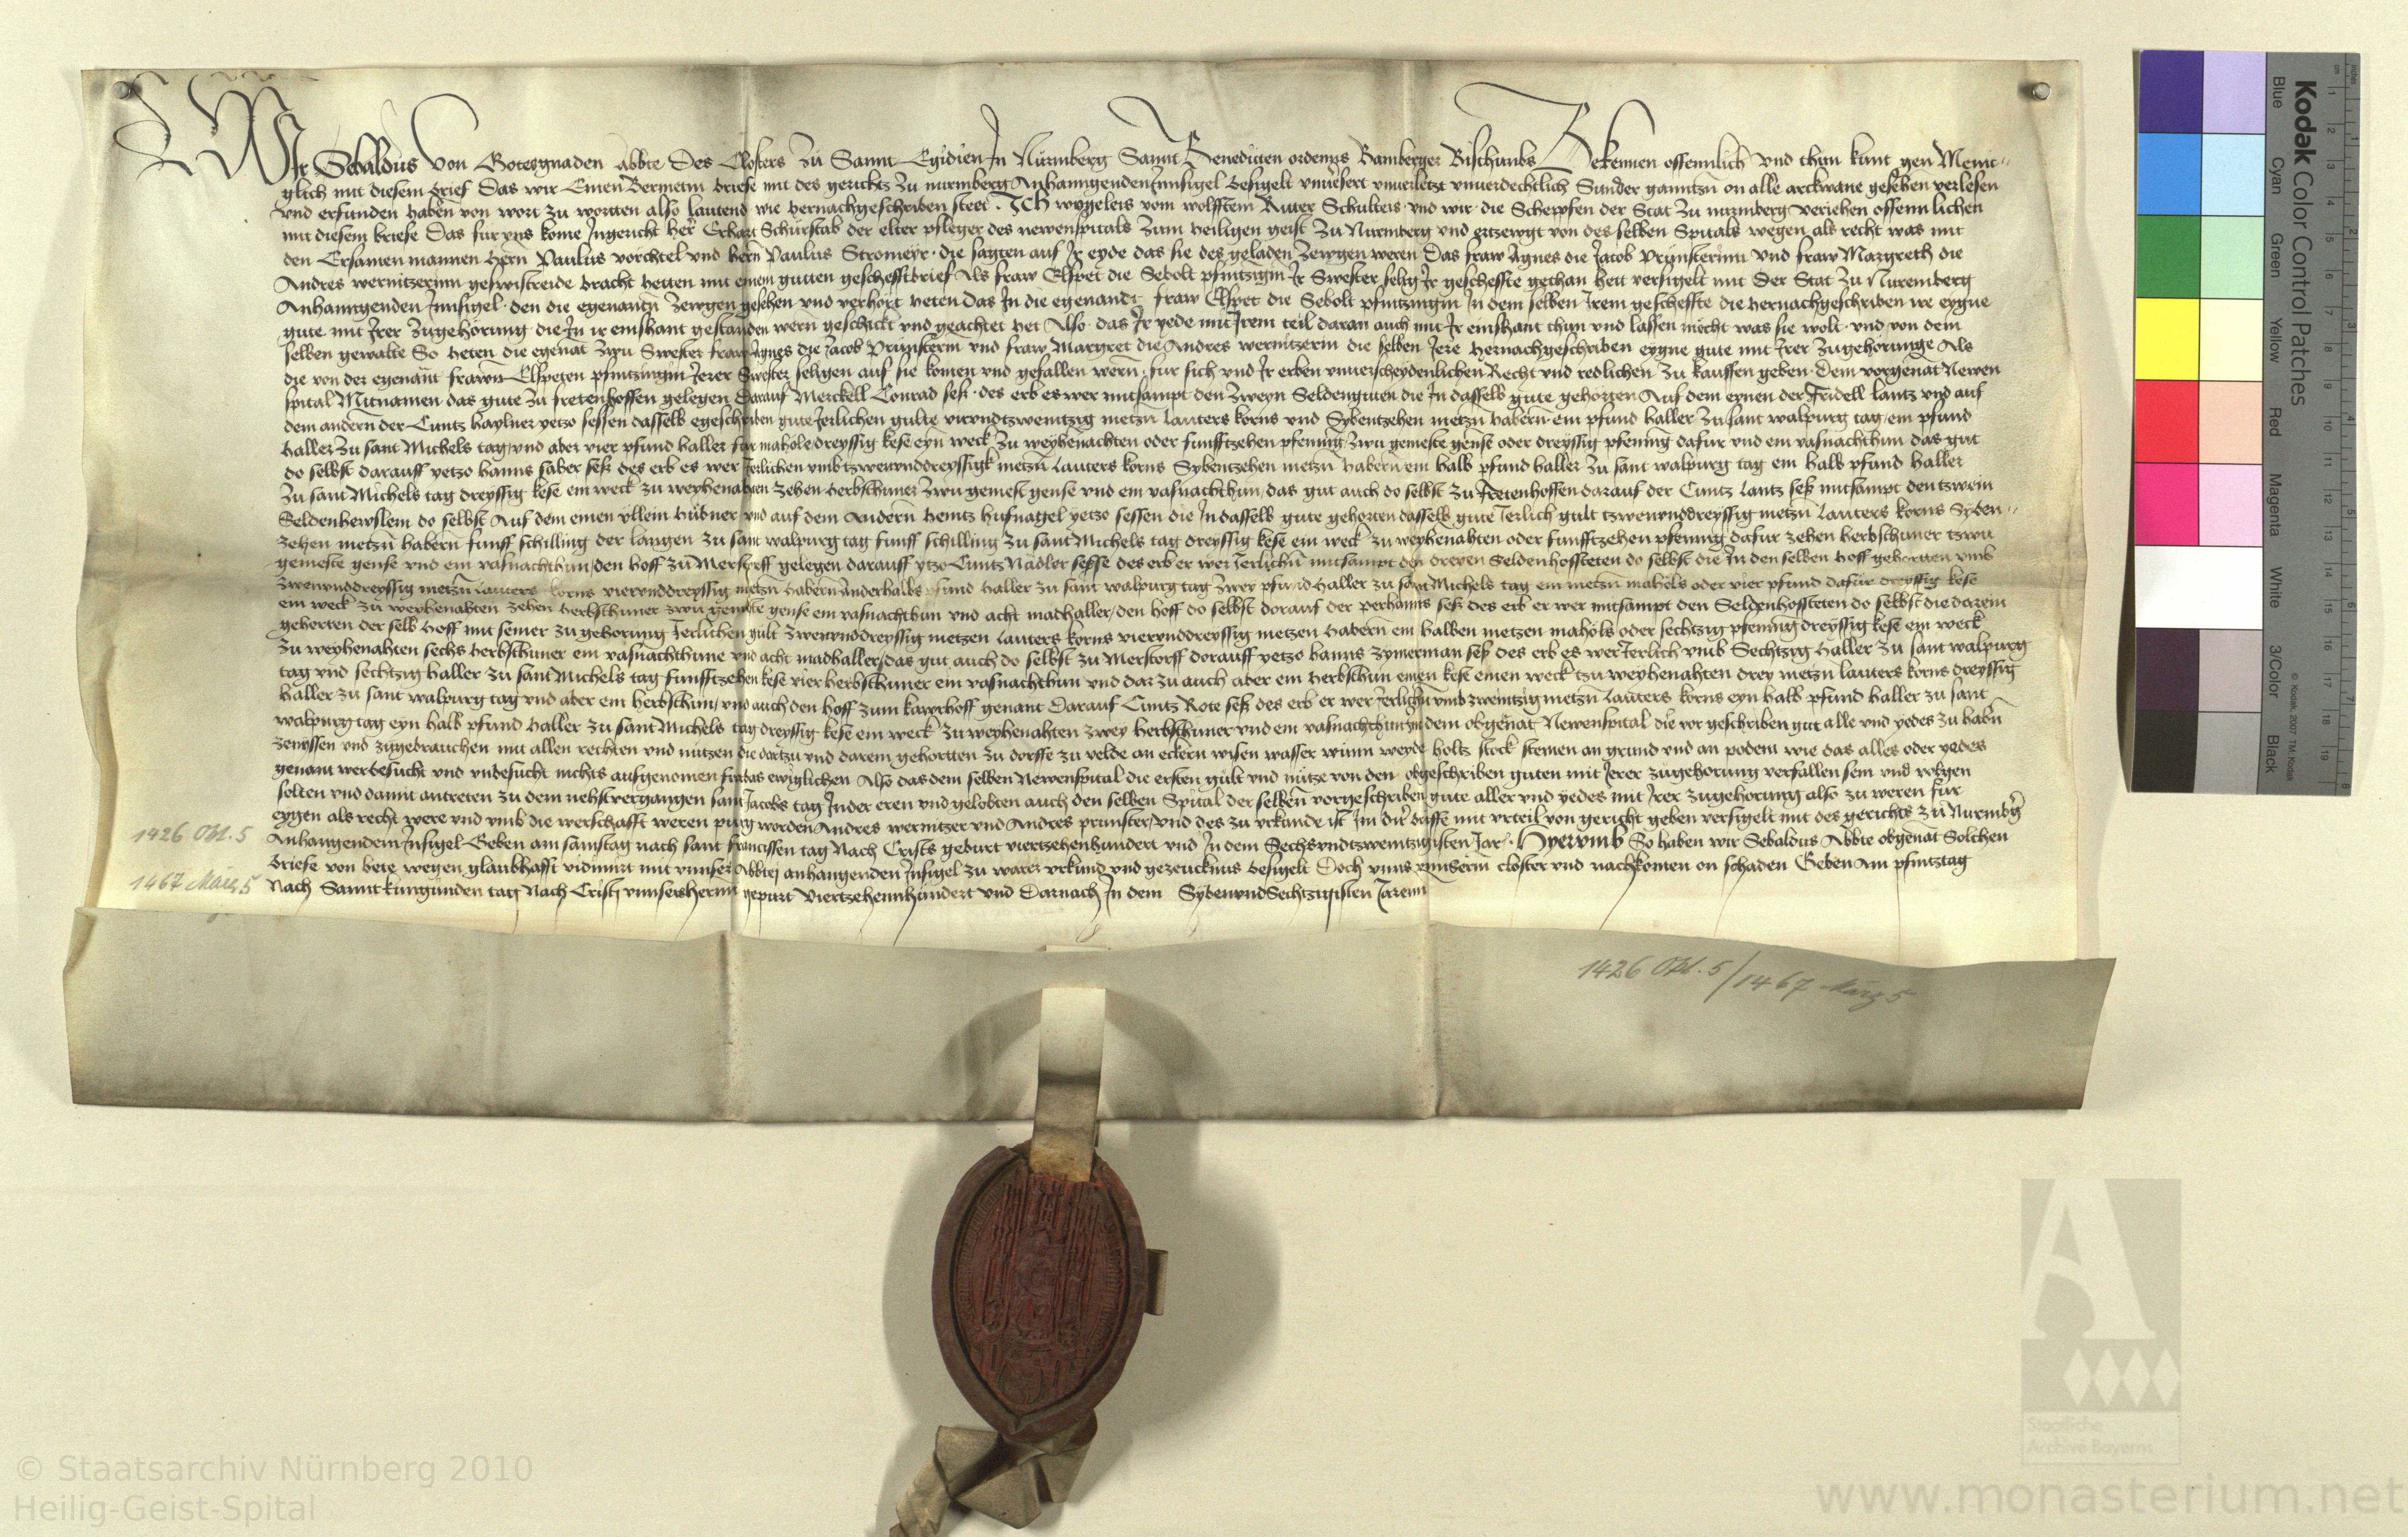 WIr Sebaldus von Gotesgnaden abbte des Closters zu Sannt Egidien In Nurmberg Sannt Benedicten ordenns Bamberger Bischumbs Bekennen offennlich vnd thun kunt gen Menic-
glich mit diesem brief Das wir Einen Bermetin briefe mit des gerichtz zu nurmberg Anhanngenden Innsigel besigelt vnuersert vnuerletzt vnuerdechtlich Sunder ganntzn on alle arckwane gesehen verlesen
vnd erfunden haben von wort zu wortten also lautend wie hernachgeschriben steet. ICh wygeleis vom wolfstein Ritter Schulteis vnd wir die Schepfen der Stat zu nurmberg veriehen offennlichen
mit diesem briefe Das fur vns kome Ingericht her Erhart Schurstab der elter pfleger des newenspitals zum heiligen geist zu Nurmberg vnd ertzewgt von des selben Spitals wegen als recht was mit
den Ersamen mannen hern Paulus vorchtel vnd hern Paulus Stromeyr die sagten auf Ir eyde das sie des geladen zewgen weren Das fraw Agnes die Jacob Prunsterinn vnd fraw Margreth die
Andres wernitzerinn geswistreide bracht hetten mit einem guten geschefftbrief Als fraw Elspet die Sebolt pfintzigin Ir Swester selig Ir gescheffte gethan hett versigelt mit der Stat zu Nuremberg
Anhanngenden Innsigel den die egenantn zewgen gesehen vnd verhört heten das In die egenant fraw Elspet die Sebolt pfintzingin In dem selben Irem gescheffte die hernachgeschriben ire eygne
gute mit Irer zugehörung die In ir einskant gestanden wern geschickt vnd geachtet het Also das Ir yede mit Irem teil daran auch mit Ir einskant thun vnd lassen möcht was sie wolt vnd von dem
selben gewalte So heten die egenant zwu Swester fraw Agnes die Jacob Prunsterin vnd fraw Margret die Andres wernitzerin die selben Iere hernachgeschriben eygne gute mit Irer zugehorunge Als
die von der egenant frawn Elspeten pfintzingin Ierer Swester seligen auf sie komen vnd gefallen wern fur sich vnd Ir erben vnuerscheydenlichen Recht vnd redlichen zu kauffen geben dem vorgenat Newen
spital Mitnamen das gute zu fretenhoffen gelegen Darauf Merckell Conrad sesz des erb es wer mitsampt den zweyn Seldengutern die In dasselb gute gehorten Auf dem eynen der Fridell lantz vnd auf
dem andern der Cuntz haylner yetzo sessen dasselb egeschriben gute Ierlichen gulte virvndtzweintzig metzn lauters korns vnd Sybentzehen metzn habern ein pfund haller zu sant walpurg tag ein pfund
haller zu sant Michels tag vnd aber vier pfund haller fur mahole dreyssig kese eyn weck zu weyhenachten oder funfftzehen pfennig zwu gemeste gense oder dreyssig pfening dafur vnd ein vasnachthun das gut
do selbst darauff yetzo hanns faber sesz des erb es wer Ierlichen vmb tzwenvnddreyssigk metzn lauters korns Sybentzehen metzn habern ein halb pfund haller zu sant walpurg tag ein halb pfund haller
zu sant Michels tag dreyssig kese ein weck zu weyhenahten zehen herbsthuner zwu gemest gense vnd ein vasnachthun das gut auch do selbst zu fretenhoffen darauf der Cuntz lantz sesz mitsampt den tzwein
Seldenhewslein do selbst Auf dem einen vllein hubner vnd auf dem Andern heintz hufnagel yetzo sessen die In dasselb gute gehorten dasselb gute Ierlich gult tzwenvnddreyssig metzn lauters korns Syben-
zehen metzn habern funff schilling der langen zu sant walpurg tag funff schilling zu sant Michels tag dreyssig kese ein weck zu weyhenahten oder funfftzehen pfennig dafur zehen herbsthuner tzwu
gemeste gense vnd ein vasnachthun den hoff zu Merstorff gelegen darauff ytzo Cuntz Nadler sesse des erb er wer Ierlichn mitsampt den dreyen Seldenhoffsteten do selbst die In den selben hoff gehortten vmb
zwenvnddreyssig metzn lauters korns viervnddreyssig metzn habern Anderhalbs pfund haller zu sant walpurg tag zwey pfund haller zu sant Michels tag ein metzn mahels oder vier pfund dafur dreyssig kese
ein weck zu weyhenahten zehen herbsthuner zwu gemeste gense ein vasnachthun vnd acht madhaller den hoff do selbst dorauf der perhanns sesz des erb er wer mitsampt den Seldenhoffsteten do selbst die darein
gehorten der selb hoff mit seiner zugehorung Ierlichen gult zwenvnddreyssig metzen lauters korns viervnddreyssig metzen habern ein halben metzen mahöls oder sechtzig pfening dreyssig kese ein weck
zu weyhenahten sechs herbsthuner ein vasnachthune vnd acht madhaller das gut auch do selbst zu Merstorff dorauff yetzo hanns zymerman sesz des erb es wer Ierlich vmb Sechtzig haller zu sant walpurg
tag vnd sechtzig haller zu sant Michels tag funfftzehen kese vier herbsthuner ein vasnachthun vnd dar zu auch aber ein herbsthun einen kese einen weck tzu weyhenahten drey metzn lauters korns dreyssig
haller zu sant walpurg tag vnd aber ein herbsthun vnd auch den hoff zum kawrhoff genant Darauf Cuntz Rote sesz des erb er wer Ierlichn vmb zweintzig metzn lauters korns eyn halb pfund haller zu sant
walpurg tag eyn halb pfund haller zu sant Michels tag dreyssig kese ein weck zu weyhenahten zwey herbsthuner vnd ein vasnachthun In dem obgenat Newenspital die vor geschriben gut alle vnd yedes zu habn
zenyssen vnd zugebrauchen mit allen rechten vnd nutzen die dartzu vnd darein gehortten zu dorffe zu velde an eckern wisen wasser wunn weyde holtz stock steinen an grund vnd an podem wie das alles oder yedes
genant wer besucht vnd vnbesucht nichts ausgenomen furbas ewiglichen Also das dem selben Newenspital die ersten gult vnd nutze von den obgeschriben guten mit Ierer zugehorung verfallen sein vnd volgen
solten vnd damit antreten zu dem nehstvergangen sant Jacobs tag In der eren vnd gelobten auch den selben Spital der selben vorgeschriben gute aller vnd yedes mit Irer zugehorung also zu weren fur
eygen als recht were vnd vmb die werschafft weren purg worden Andres wernitzer vnd Andres prunster vnd des zu vrkunde ist Im dir brieff mit vrteil von gericht geben versigelt mit des gerichts zu Nurmbg
Anhangendem Insigel Geben am samstag nach sant francissen tag Nach Crists geburt viertzehenhundert vnd In dem Sechsvndtzweintzigisten Jar. Hyervmb So haben wir Sebaldus Abbte obgenat Solchen
briefe von bete wegen glaubhafft vidimirt mit vnnser Abbtej anhangenden Insigel zu warer vrkund vnd gezeucknus besigelt Doch vnns vnnserm closter vnd nachkomen on schaden Geben Am pfintztag
Nach Sannt kungunden tag Nach Crist vnnsersherrn gepurt Viertzehennhundert vnd Darnach In dem SybenvndSechtzigisten Jarenn
1426 Okt. 5
1467 März 5
1426 Okt. 5/1467 März 5
Kodak Color Control Patches
© Kodak, 2007 TM: Kodak
Blue Cyan Green Yellow Red Magenta White 3/Color Black
© Staatsarchiv Nürnberg 2010
Heilig-Geist-Spital
Staatliche
Archive Bayerns
www.monasterium.net